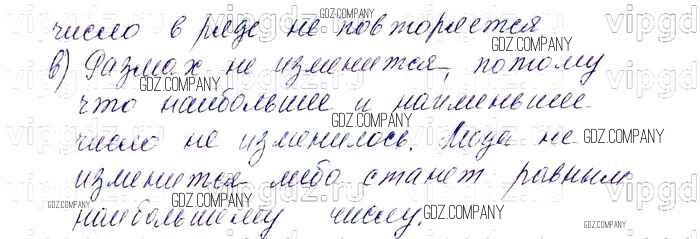 число в ряде не повторяется
в) Размах не изменится, потому
что наибольшее и наименьшее
число не изменилось. Мода не
изменится либо станет равным
наибольшему числу.
GDZ.COMPANY
GDZ.COMPANY
GDZ.COMPANY
GDZ.COMPANY
GDZ.COMPANY
GDZ.COMPANY
GDZ.COMPANY
GDZ.COMPANY
GDZ.COMPANY